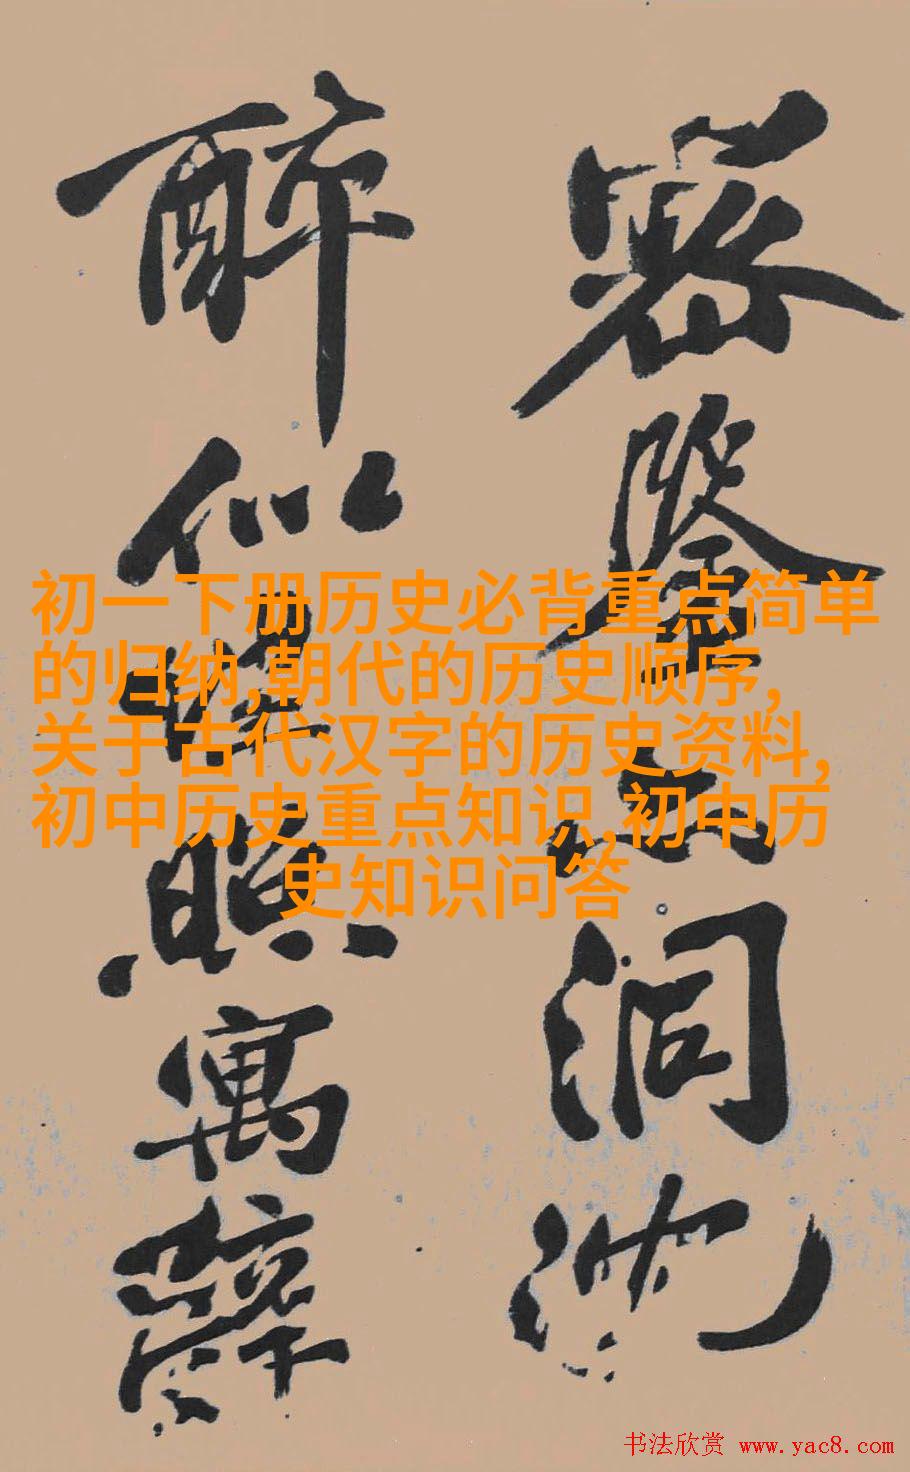 初一下册历史必背重点简单
的归纳,朝代的历史顺序,
关于古代汉字的历史资料,
初中历史重点知识,初中历
史知识问答
醉
照
寓
洞
书法欣赏 www.yac8.com